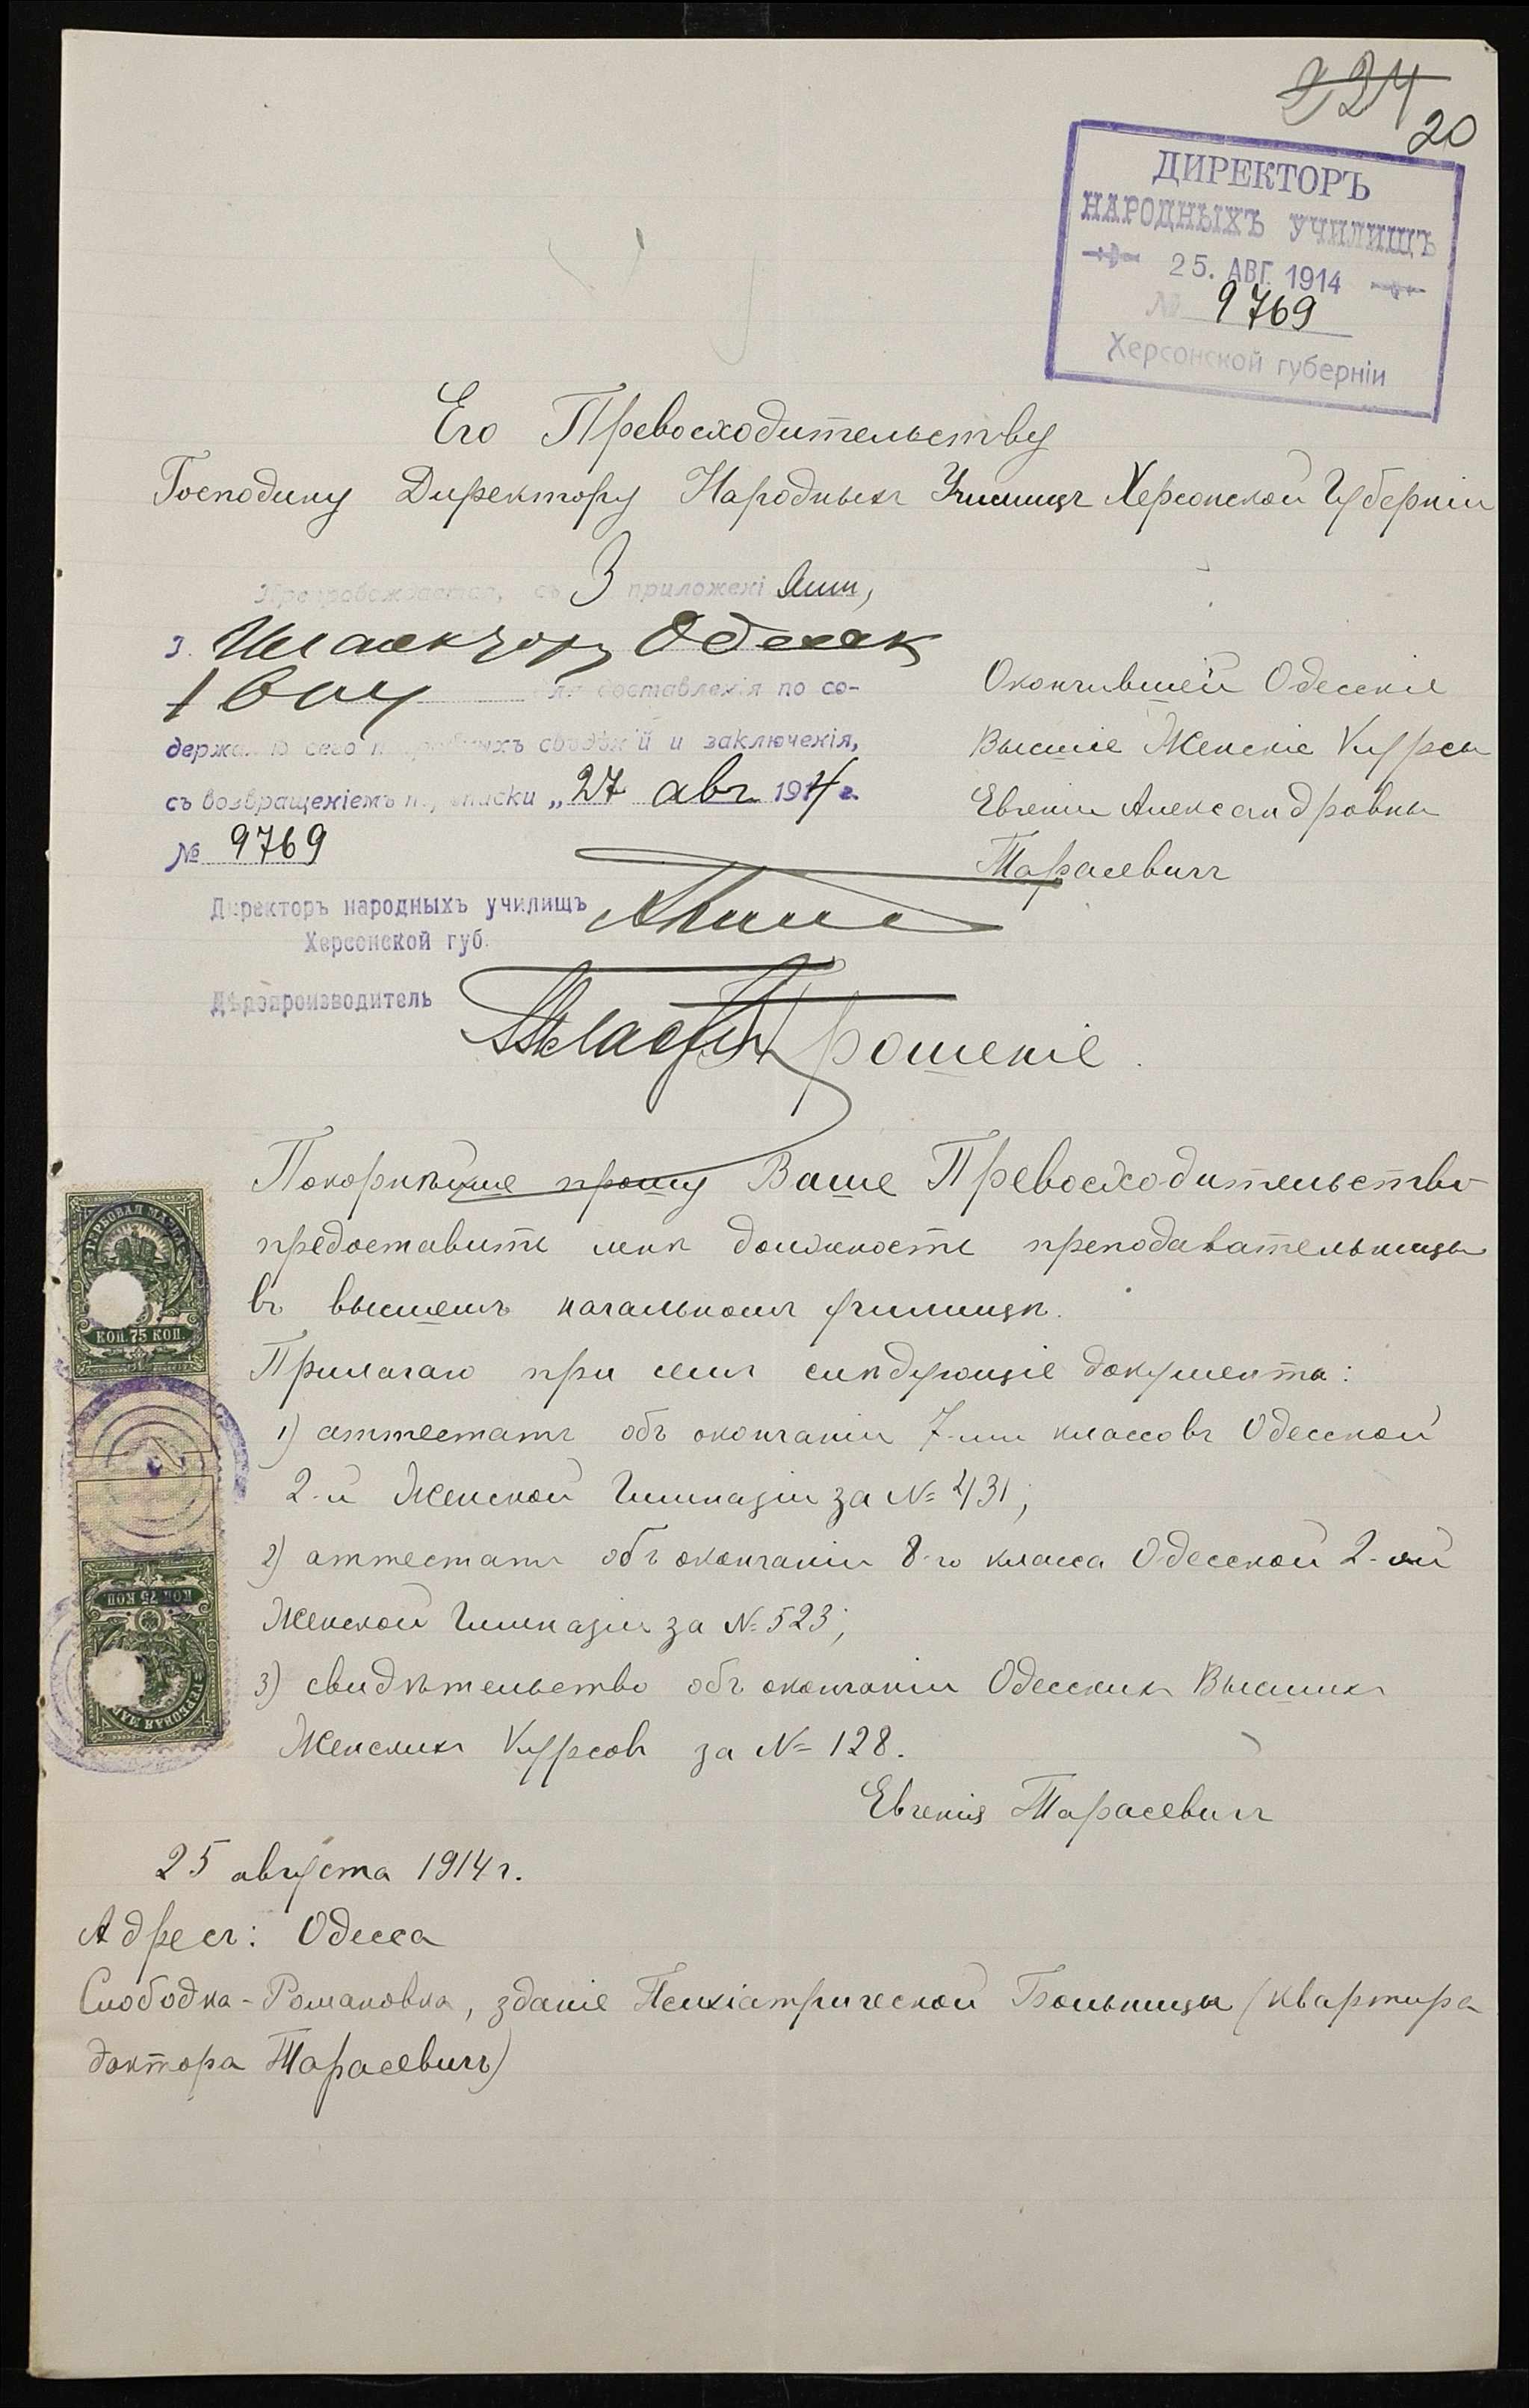 224
20
ДИРЕКТОРЪ
НАРОДНЫХЪ УЧИЛИЩЪ
25. АВГ. 1914
№ 9769
Херсонской губерніи
Его Превосходительству
Господину Директору Народныхъ Училищъ Херсонской Губерніи
Препровождается, съ 3 приложеніями,
г. Инспектору Одесск
1 доставленія по со-
держанію сего подробныхъ свѣдѣній и заключенія,
съ возвращеніемъ переписки „27 авг. 1914 г.
№ 9769
Директоръ народныхъ училищъ
Херсонской губ.
Дѣлопроизводитель
Окончившей Одесскіе
Высшіе Женскіе Курсы
Евгеніи Александровны
Тарасевичъ
Прошеніе.
Покорнѣйше прошу Ваше Превосходительство
предоставить мнѣ должность преподавательницы
въ высшемъ начальномъ училищѣ.
Прилагаю при семъ слѣдующіе документы:
1) аттестатъ объ окончаніи 7-ми классовъ Одесской
2-й Женской Гимназіи за № 431;
2) аттестатъ объ окончаніи 8-го класса Одесской 2-ой
Женской Гимназіи за № 523;
3) свидѣтельство объ окончаніи Одесскихъ Высшихъ
Женскихъ Курсовъ за № 128.
Евгенія Тарасевичъ
25 августа 1914 г.
Адресъ: Одесса
Слободка-Романовка, зданіе Психіатрической Больницы (квартира
доктора Тарасевичъ)
ГЕРБОВАЯ МАРКА
КОП. 75 КОП.
ГЕРБОВАЯ МАРКА
КОП. 75 КОП.